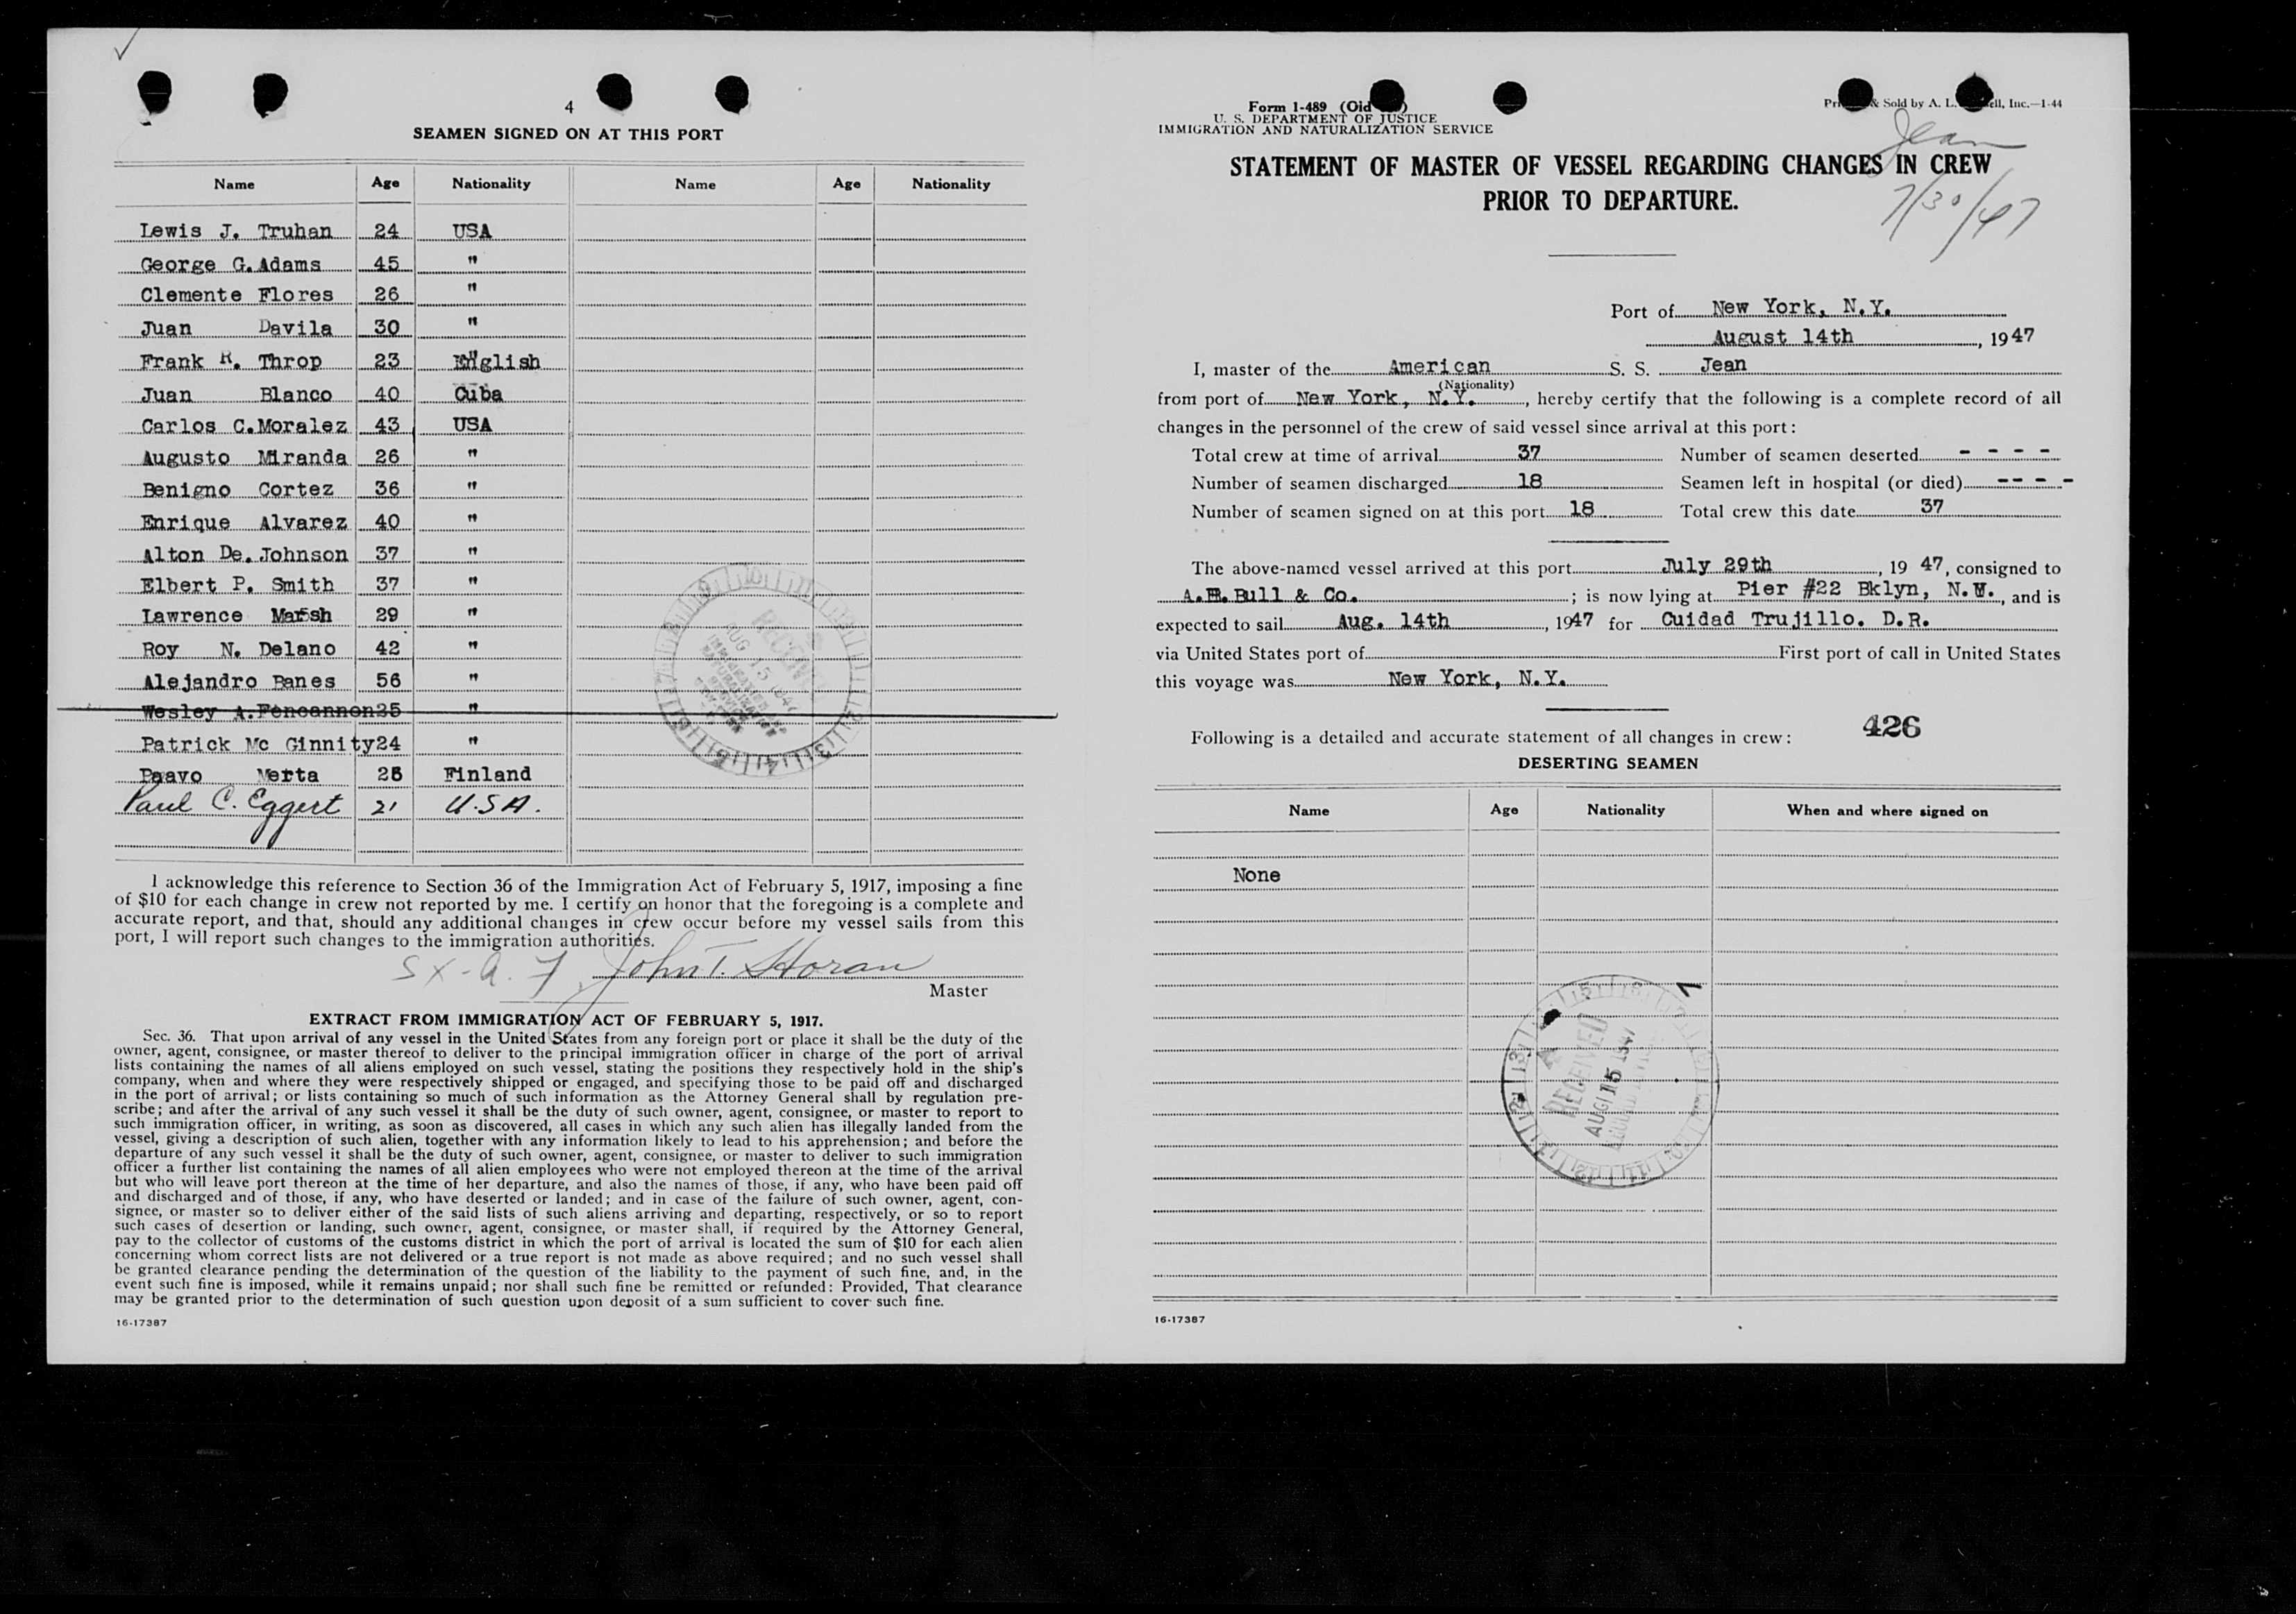 4
SEAMEN SIGNED ON AT THIS PORT
Name Age Nationality Name Age Nationality
Lewis J. Truhan 24 USA
George G. Adams 45 "
Clemente Flores 26 "
Juan Davila 30 "
Frank R. Throp 23 English
Juan Blanco 40 Cuba
Carlos C. Moralez 43 USA
Augusto Miranda 26 "
Benigno Cortez 36 "
Enrique Alvarez 40 "
Alton De. Johnson 37 "
Elbert P. Smith 37 "
Lawrence Marsh 29 "
Roy N. Delano 42 "
Alejandro Banes 56 "
Wesley A. Fencannon 25 "
Patrick Mc Ginnity 24 "
Paavo Merta 26 Finland
Paul C. Eggert 21 U.S.A.
I acknowledge this reference to Section 36 of the Immigration Act of February 5, 1917, imposing a fine
of $10 for each change in crew not reported by me. I certify on honor that the foregoing is a complete and
accurate report, and that, should any additional changes in crew occur before my vessel sails from this
port, I will report such changes to the immigration authorities.
John T. Horan
Master
EXTRACT FROM IMMIGRATION ACT OF FEBRUARY 5, 1917.
Sec. 36. That upon arrival of any vessel in the United States from any foreign port or place it shall be the duty of the
owner, agent, consignee, or master thereof to deliver to the principal immigration officer in charge of the port of arrival
lists containing the names of all aliens employed on such vessel, stating the positions they respectively hold in the ship's
company, when and where they were respectively shipped or engaged, and specifying those to be paid off and discharged
in the port of arrival; or lists containing so much of such information as the Attorney General shall by regulation pre-
scribe; and after the arrival of any such vessel it shall be the duty of such owner, agent, consignee, or master to report to
such immigration officer, in writing, as soon as discovered, all cases in which any such alien has illegally landed from the
vessel, giving a description of such alien, together with any information likely to lead to his apprehension; and before the
departure of any such vessel it shall be the duty of such owner, agent, consignee, or master to deliver to such immigration
officer a further list containing the names of all alien employees who were not employed thereon at the time of the arrival
but who will leave port thereon at the time of her departure, and also the names of those, if any, who have been paid off
and discharged and of those, if any, who have deserted or landed; and in case of the failure of such owner, agent, con-
signee, or master so to deliver either of the said lists of such aliens arriving and departing, respectively, or so to report
such cases of desertion or landing, such owner, agent, consignee, or master shall, if required by the Attorney General,
pay to the collector of customs of the customs district in which the port of arrival is located the sum of $10 for each alien
concerning whom correct lists are not delivered or a true report is not made as above required; and no such vessel shall
be granted clearance pending the determination of the question of the liability to the payment of such fine, and, in the
event such fine is imposed, while it remains unpaid; nor shall such fine be remitted or refunded: Provided, That clearance
may be granted prior to the determination of such question upon deposit of a sum sufficient to cover such fine.
16-17387
Form 1-489 (Old
U. S. DEPARTMENT OF JUSTICE
IMMIGRATION AND NATURALIZATION SERVICE
& Sold by A. L. Inc.—1-44
Jean
7/30/47
STATEMENT OF MASTER OF VESSEL REGARDING CHANGES IN CREW
PRIOR TO DEPARTURE.
Port of New York, N.Y.
August 14th, 1947
I, master of the American S. S. Jean
(Nationality)
from port of New York, N.Y., hereby certify that the following is a complete record of all
changes in the personnel of the crew of said vessel since arrival at this port:
Total crew at time of arrival 37 Number of seamen deserted - - - -
Number of seamen discharged 18 Seamen left in hospital (or died) - - - -
Number of seamen signed on at this port 18 Total crew this date 37
The above-named vessel arrived at this port July 29th, 19 47, consigned to
A.H. Bull & Co.; is now lying at Pier #22 Bklyn, N.Y., and is
expected to sail Aug. 14th, 1947 for Cuidad Trujillo. D.R.
via United States port of First port of call in United States
this voyage was New York, N.Y.
426
Following is a detailed and accurate statement of all changes in crew:
DESERTING SEAMEN
Name Age Nationality When and where signed on
None
RECEIVED
AUG 15 1947
16-17387